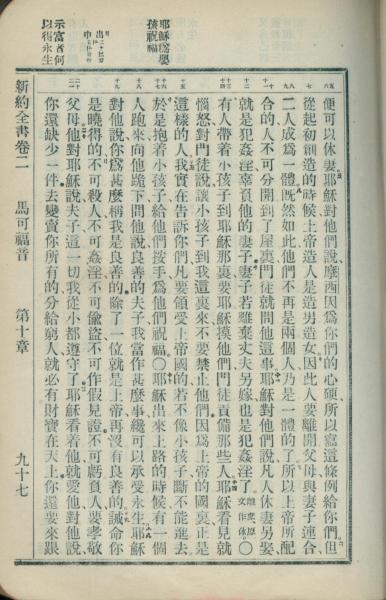 耶穌爲嬰
孩祝福
出二十章
申五章
示富者何
以得永生
便可以休妻耶穌對他們說摩西因爲你們的心硬所以寫這條例給你們但
從起初創造的時候上帝造人是造男造女因此人要離開父母與妻子連合
二人成爲一體旣然如此他們不再是兩個人乃是一體的了所以上帝所配
合的人不可分開到了屋裏門徒就問他這事耶穌對他們說凡人休妻另娶
就是犯姦淫辜負他的妻子妻子若離棄丈夫另嫁也是犯姦淫了離棄原文作休〇
有人帶着小孩子到耶穌那裏要耶穌摸他們門徒責備那些人耶穌看見就
惱怒對門徒說讓小孩子到我這裏來不要禁止他們因爲上帝的國裏正是
這樣的人我實在告訴你們凡要領受上帝國的若不像小孩子斷不能進去
於是抱着小孩子給他們按手爲他們祝福〇耶穌出來上路的時候有一個
人跑來向他跪下問他說良善的夫子我當作甚麼事纔可以承受永生耶穌
對他說你爲甚麼稱我是良善的除了一位就是上帝再沒有良善的誡命你
是曉得的不可殺人不可姦淫不可偸盜不可作假見證不可虧負人要孝敬
父母他對耶穌說夫子這一切我從小都遵守了耶穌看着他就愛他對他說
你還缺少一件去變賣你所有的分給窮人就必有財寶在天上你還要來跟
新約全書卷二 馬可福音 第十章 九十七